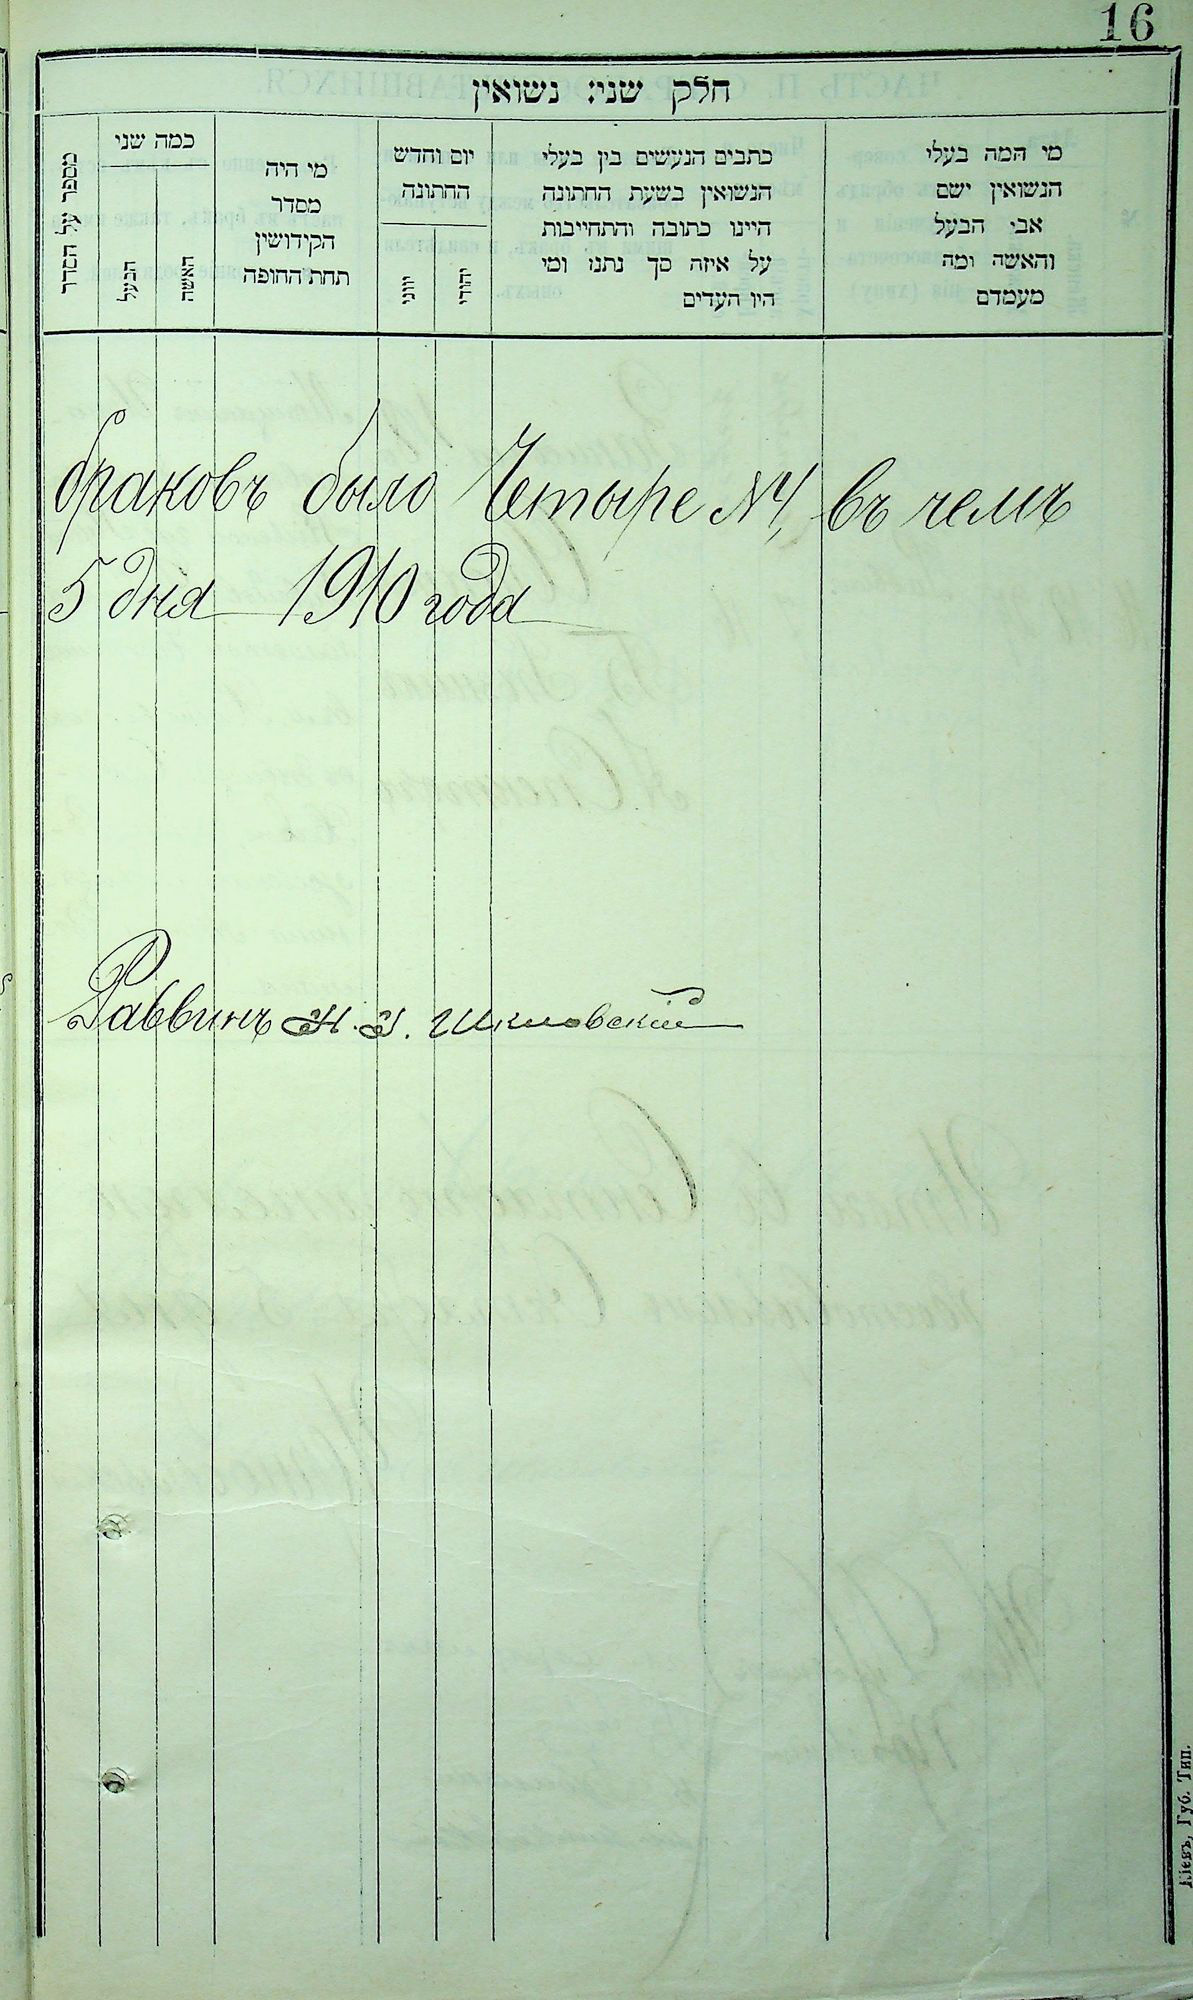 16
חלק שני: נשואין
מי המה בעלי
הנשואין ישם
אבי הבעל
והאשה ומה
מעמדם
כתבים הנעשים בין בעלי
הנשואין בשעת החתונה
היינו כתובה והתחייבות
על איזה סך נתנו ומי
היו העדים
יום וחדש
החתונה
יהודי
יווני
מי היה
מסדר
הקידושין
תחת החופה
כמה שני
האשה
הבעל
מספר על הסדר
браковъ было Четыре №4, въ чемъ
5 дня 1910 года
Раввинъ Шкловскій
Кіевъ, Губ. Тип.